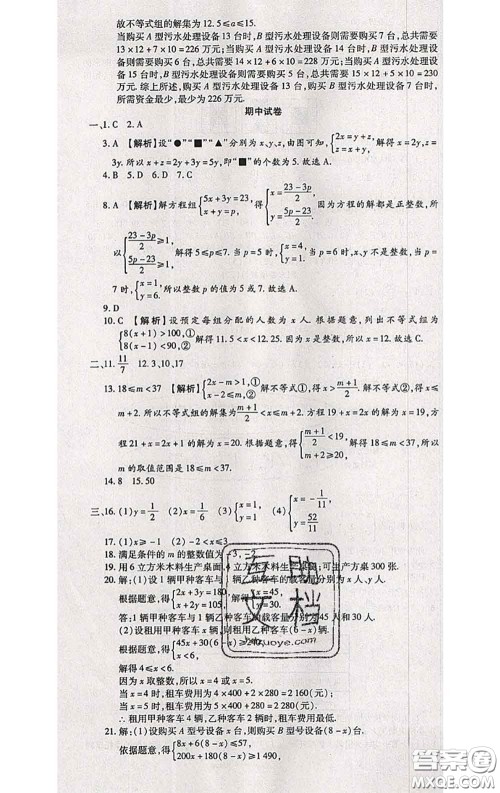 故不等式组的解集为 12.5≤a≤15.
当购买 A 型污水处理设备 13 台时,B 型污水处理设备则需要购买 7 台,总共需要
13×12+7×10=226 万元;当购买 A 型污水处理设备 14 台时,B 型污水处理设
备则需要购买 6 台,总共需要 14×12+6×10=228 万元;当购买 A 型污水处理设
备 15 台时,B 型污水处理设备则需要购买 5 台,总共需要 15×12+5×10=230
万元.综上所述,购买 A 型污水处理设备 13 台,B 型污水处理设备 7 台时,
所需资金最少,最少为 226 万元.
期中试卷
一、1.C 2.A
3.A 【解析】设“●”“■”“▲”分别为 x、y、z,由图可知,{2x=y+z, z=x+y, 解得 x=2y,z=
3y.所以 x+z=2y+3y=5y,即“■”的个数为 5.故选 A.
4.B 5.D 6.D 7.C
8.A 【解析】解方程组{5x+3y=23, x+y=p, 得{x=(23-3p)/2, y=(5p-23)/2. 因为方程的解都是正整数,所
以{(23-3p)/2≥1, (5p-23)/2≥1, 解得 5≤p≤7.当 p=5 时,{x=4, y=1, 当 p=6 时,x、y 不是整数,当 p=
7 时,{x=1, y=6, 所以整数 p 的值为 5 或 7.故选 A.
9.D
10.C 【解析】设预定每组分配的人数为 x 人.根据题意,列出不等式组为
{8(x+1)>100,① 8(x-1)<90,② 解得 11.5<x<12.25.因为 x 取整数,所以 x=12.故选 C.
二、11.11/7 12.3、10、17
13.18≤m<37 【解析】{2x-m>1,① x-2≤m,② 解不等式①,得 x>(m+1)/2.解不等式②,得 x≤
m+2.所以不等式组的解集为(m+1)/2<x≤m+2.方程 19+x=2x 的解为 x=19,方
程 21+x=2x+1 的解为 x=20.根据题意,得{(m+1)/2<19, m+2≥20, 解得 18≤m<37,所以
m 的取值范围是 18≤m<37.
14.8 15.50
三、16.(1)y=1/2 (2)x=1/6 (3){x=1, y=1 (4){x=-1/11, y=52/11
17.(1)x≥-1 (2)-2≤x<0
18.满足条件的 m 的整数值为-3,-2.
19.用 6 立方米木料生产桌面,4 立方米木料生产桌腿;可生产方桌 300 张.
20.解:(1)设 1 辆甲种客车与 1 辆乙种客车的载客量分别为 x 人,y 人.
根据题意,得{2x+3y=180, x+2y=105. 解得{x=45, y=30.
答:1 辆甲种客车与 1 辆乙种客车的载客量分别为 45 人和 30 人.
(2)设租用甲种客车 x 辆,则租用乙种客车(6-x)辆.
根据题意,得{45x+30(6-x)≥240, x<6.
解得 4≤x<6.
因为 x 取整数,所以 x=4 或 x=5.
当 x=4 时,租车费用为 4×400+2×280=2 160(元);
当 x=5 时,租车费用为 5×400+1×280=2 280(元).
∴租用甲种客车 4 辆,乙种客车 2 辆时,租车费用最低.
21.解:(1)设购买 A 型号设备 x 台,则购买 B 型号设备(8-x)台.
依据题意,得{8x+6(8-x)≤57, 200x+180(8-x)≥1 490,
答案圈
MXQE.COM